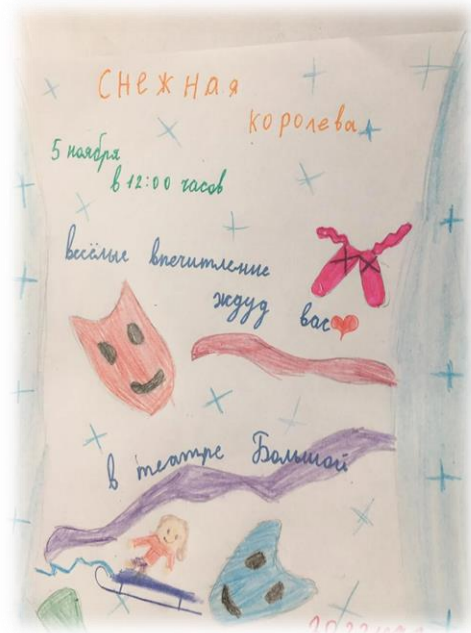 Снежная
королева
5 ноября
в 12:00 часов
весёлые впечитление
ждуд вас
в театре Большой